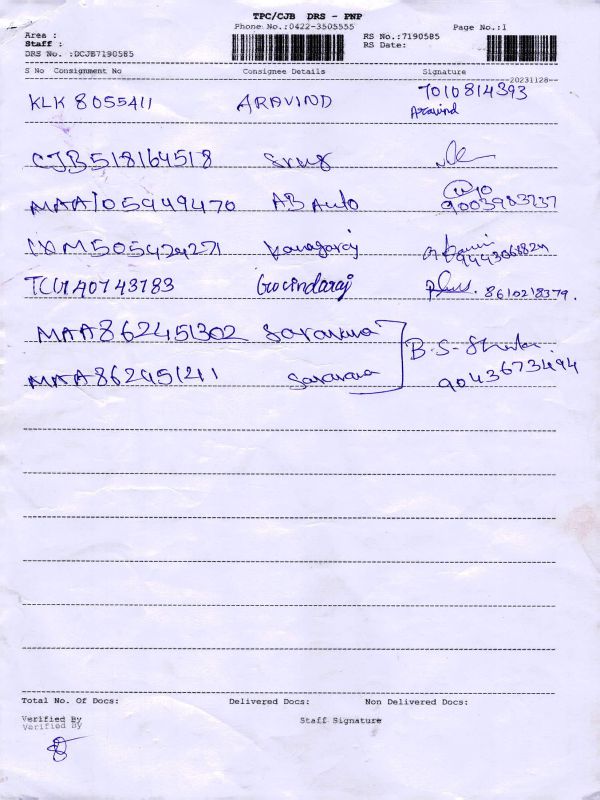 TPC/CJB DRS - PNP
Phone No.:0422-3505555 Page No.:1
Area :
Staff :
RS No.:7190585
RS Date:
DRS No. :DCJB7190585
S No Consignment No Consignee Details Signature
20231128
KLK 8055411 ARAVIND 7010814393
Aravind
CJB518164518
MAA105949470 AB Auto 9003983737
IXM505424271 Kanagaraj
TCU140743783 Govindaraj 8610218379.
MAA862451302 Saravana
B.S-
MAA862451211 Saravana 9043673494
Total No. Of Docs: Delivered Docs: Non Delivered Docs:
Verified By Staff Signature
Verified By